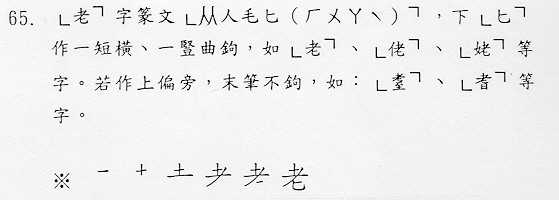 65. ﹂老﹁字篆文﹂从人毛匕（ㄏㄨㄚˋ）﹁，下﹂匕﹁
作一短橫、一豎曲鉤，如﹂老﹁、﹂佬﹁、﹂姥﹁等
字。若作上偏旁，末筆不鉤，如：﹂耋﹁、﹂耆﹁等
字。
※ 一 十 土 耂 老 老